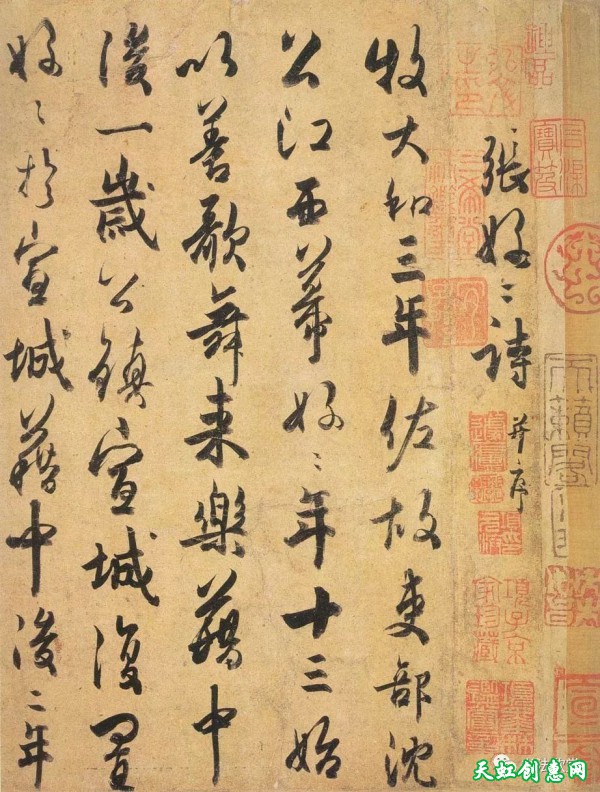 張好〻詩 并序
牧大和三年佐故吏部沈
公江西幕好〻年十三始
以善歌舞来樂籍中
後一歲公鎮宣城復置
好〻於宣城籍中後二年
天籟閣
項子京家珍藏
天虹创惠网